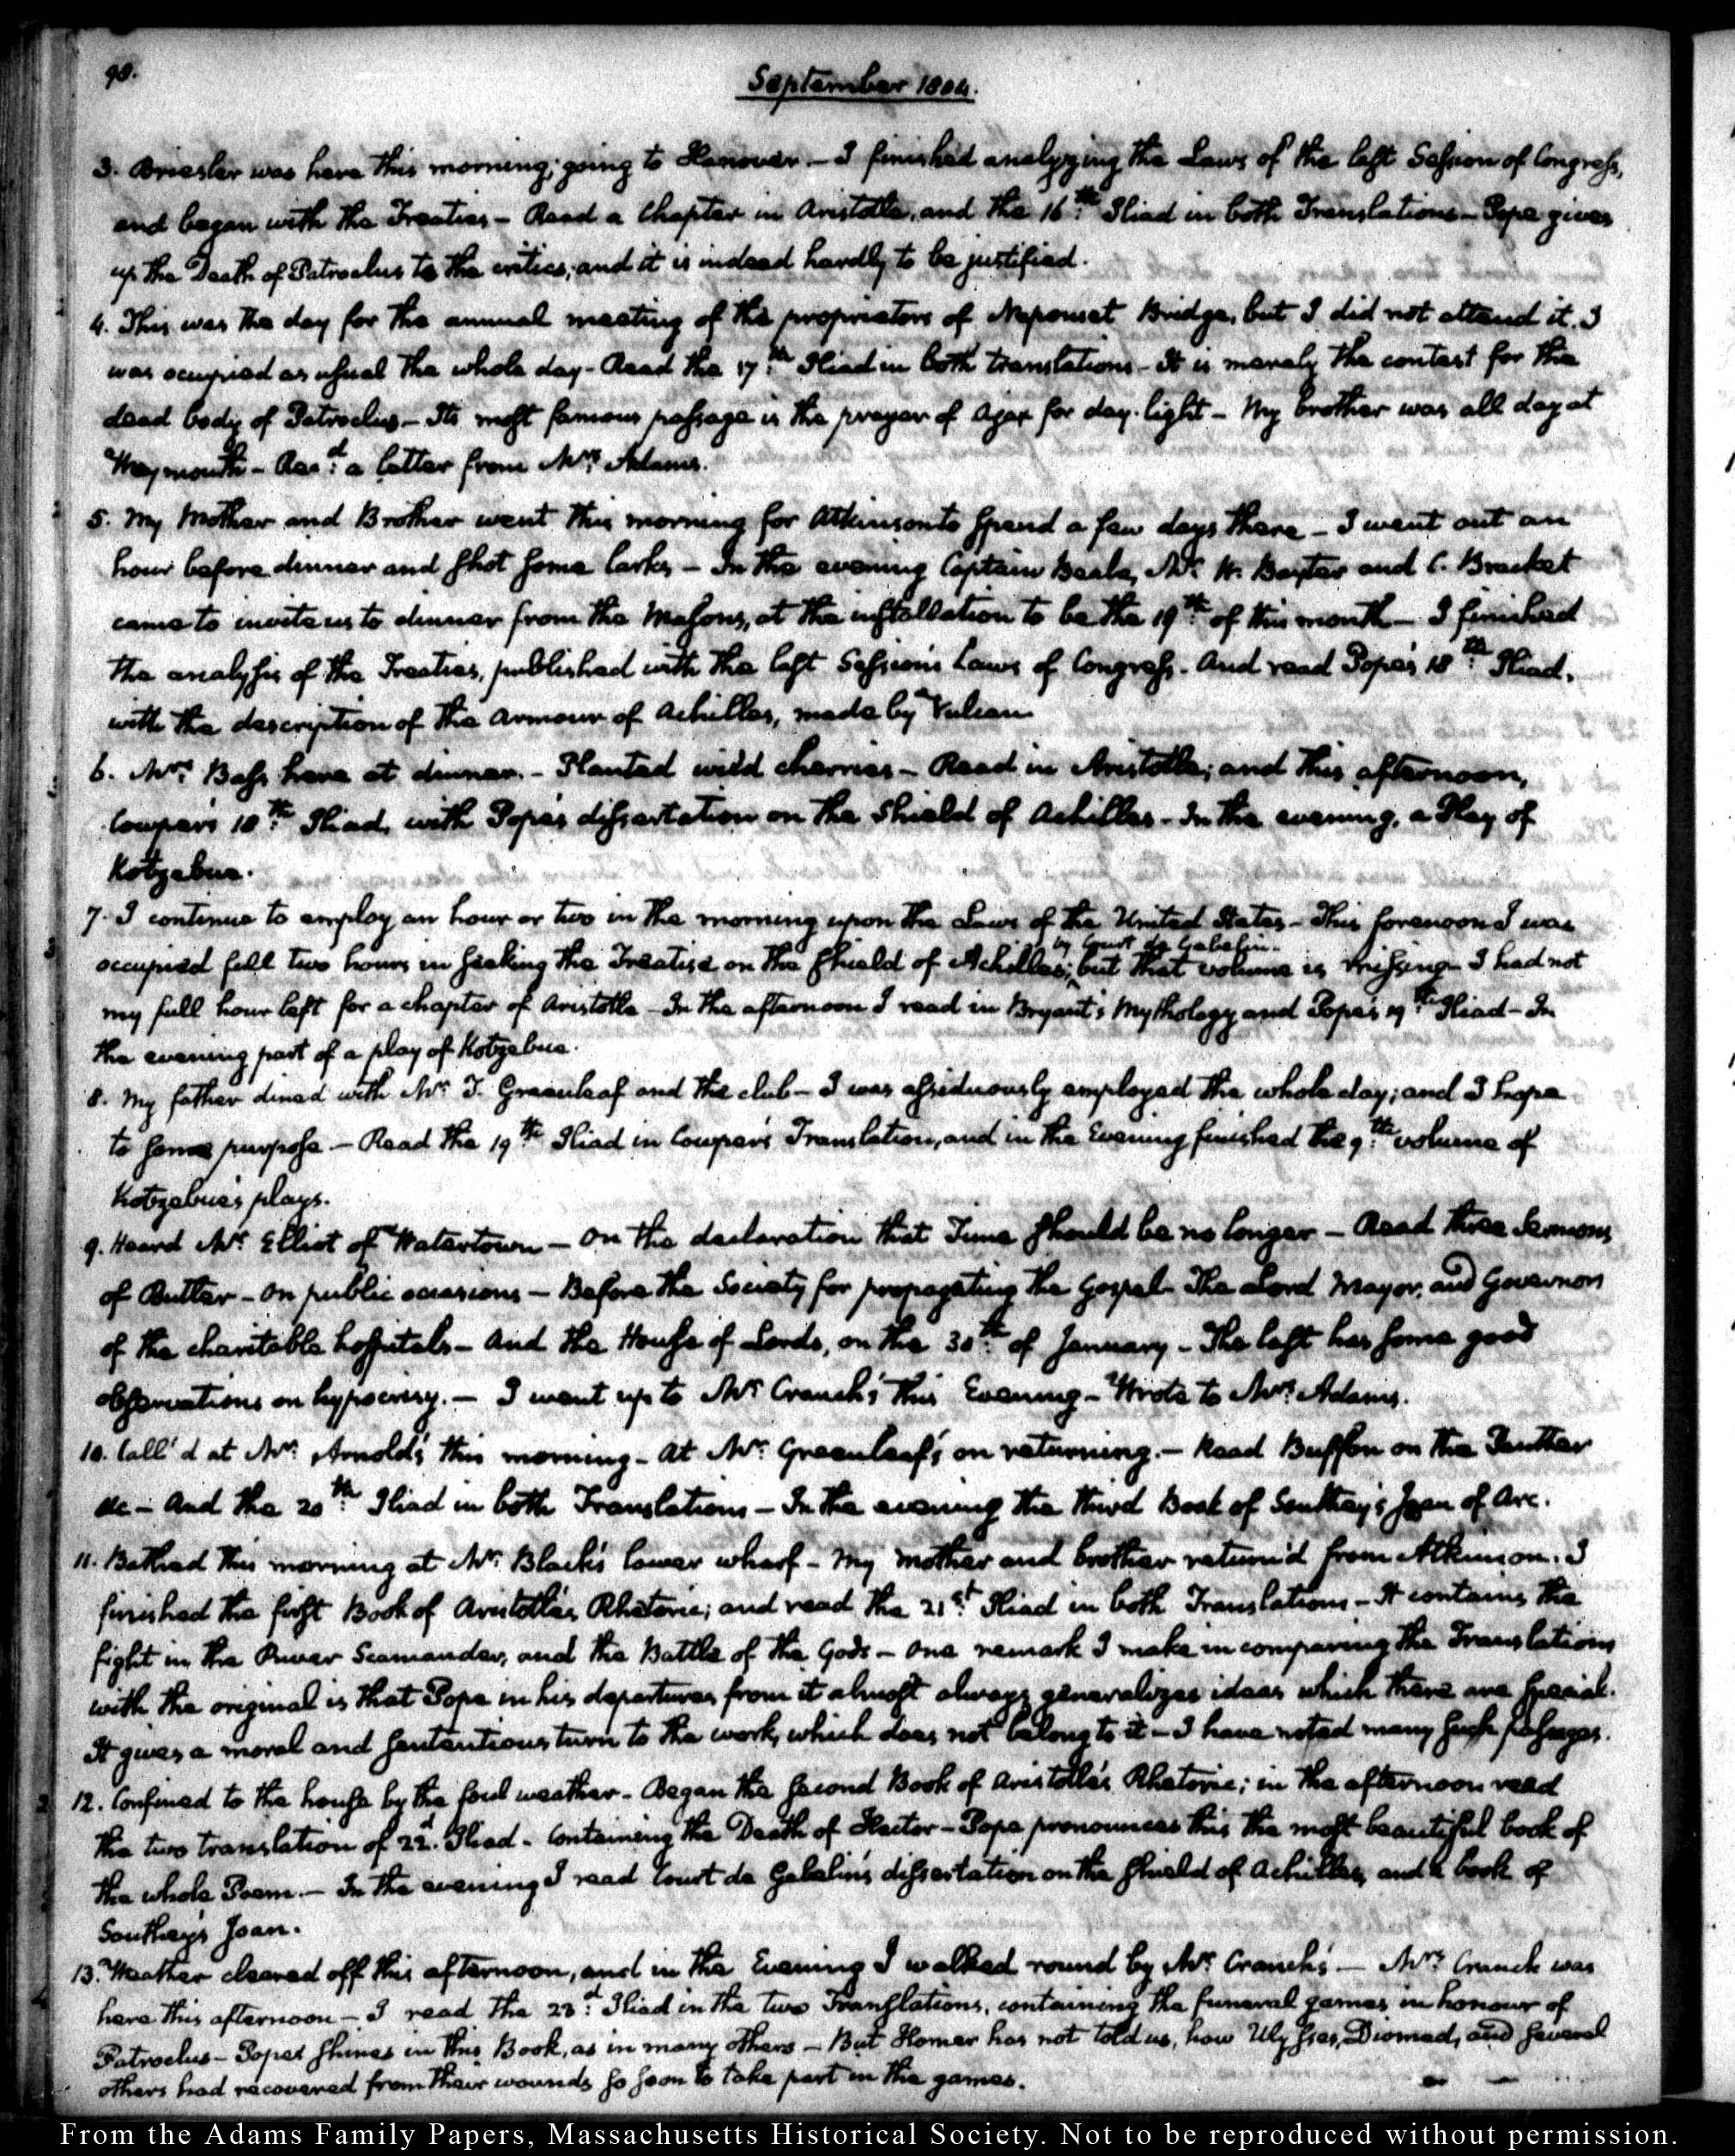 90.
September 1804.
3. Briesler was here this morning; going to Hanover. – I finished analyzing the Laws of the last Session of Congress,
and began with the Treaties – Read a Chapter in Aristotle, and the 16th Iliad in both Translations – Pope gives
up the Death of Patroclus to the critics; and it is indeed hardly to be justified.
4. This was the day for the annual meeting of the proprietors of Neponset Bridge, but I did not attend it. I
was occupied as usual the whole day – Read the 17th Iliad in both translations – It is merely the contest for the
dead body of Patroclus – Its most famous passage is the prayer of Ajax for day-light – My brother was all day at
Weymouth – Recd a letter from Mrs Adams.
5. My Mother and Brother went this morning for Atkinson to spend a few days there – I went out an
hour before dinner and shot some larks – In the evening Captain Beale, Mr W. Baxter and C. Bracket
came to invite us to dinner from the Masons, at the installation to be the 19th of this month – I finished
the analysis of the Treaties, published with the last Session's Laws of Congress. And read Pope's 18th Iliad,
with the description of the Armour of Achilles, made by Vulcan
6. Mrs Bass here at dinner. – Planted wild cherries – Read in Aristotle; and this afternoon,
Cowper's 18th Iliad, with Pope's dissertation on the Shield of Achilles – In the evening, a Play of
Kotzebue.
7. I continue to employ an hour or two in the morning upon the Laws of the United States – This forenoon I was
by Court de Gebelin.
occupied full two hours in seeking the Treatise on the shield of Achilles; but that volume is missing – I had not
my full hour left for a chapter of Aristotle – In the afternoon I read in Bryant's Mythology and Pope's 19th Iliad – In
the evening part of a play of Kotzebue.
8. My father dined with Mr T. Greenleaf and the club – I was assiduously employed the whole day; and I hope
to some purpose – Read the 19th Iliad in Cowper's Translation, and in the Evening finished the 9th volume of
Kotzebue's plays.
9. Heard Mr Elliot of Watertown – On the declaration that Time should be no longer – Read three Sermons
of Butler – On public occasions – Before the Society for propagating the Gospel – The Lord Mayor, and Governors
of the charitable hospitals – And the House of Lords, on the 30th of January – The last has some good
observations on hypocrisy. – I went up to Mr Cranch's this Evening – Wrote to Mrs Adams.
10. Call'd at Mrs Arnold's this morning – At Mr Greenleaf's on returning. – Read Buffon on the Panther
&c – And the 20th Iliad in both Translations – In the evening the third Book of Southey's Joan of Arc.
11. Bathed this morning at Mr Black's lower wharf – My mother and brother return'd from Atkinson. I
finished the first Book of Aristotle's Rhetoric; and read the 21st Iliad in both Translations – It contains the
fight in the River Scamander, and the Battle of the Gods – One remark I make in comparing the Translations
with the original is that Pope in his departures from it almost always generalizes ideas which there are special.
It gives a moral and sententious turn to the work, which does not belong to it – I have noted many such passages.
12. Confined to the house by the foul weather – Began the second Book of Aristotle's Rhetoric; in the afternoon read
the two translation of 22d Iliad – Containing the Death of Hector – Pope pronounces this the most beautiful book of
the whole Poem. – In the evening I read Court de Gebelin's dissertation on the shield of Achilles, and a book of
Southey's Joan.
13. Weather cleared off this afternoon, and in the Evening I walked round by Mr Cranch's – Mrs Cranch was
here this afternoon – I read the 23d Iliad in the two Translations, containing the funeral games in honour of
Patroclus – Pope shines in this Book, as in many others – But Homer has not told us, how Ulysses, Diomed, and several
others had recovered from their wounds so soon to take part in the games.
From the Adams Family Papers, Massachusetts Historical Society. Not to be reproduced without permission.